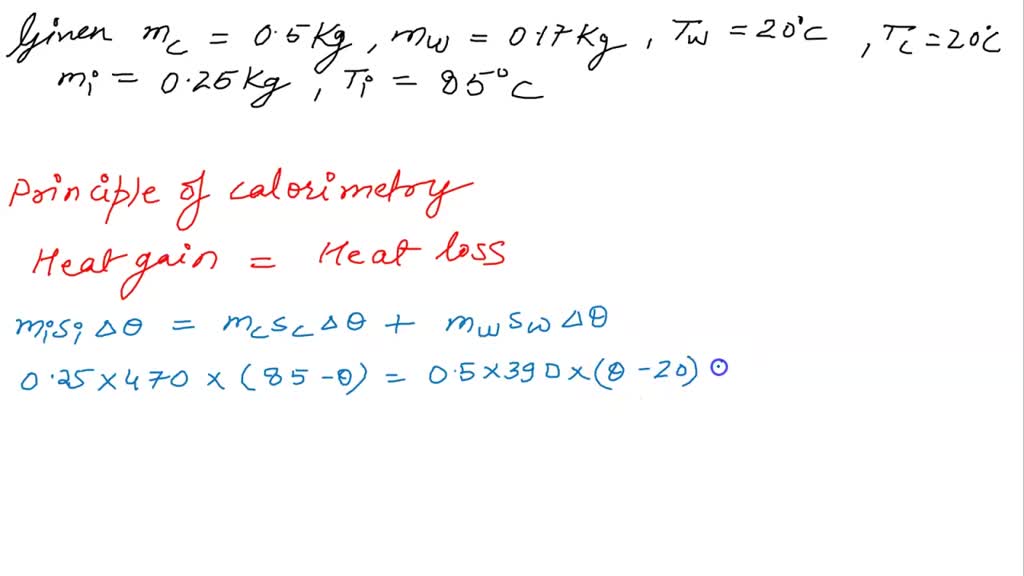 Given mc = 0.5 Kg, mw = 0.17 Kg, Tw = 20°C, Tc = 20°C
mi = 0.25 Kg, Ti = 85°C
Principle of calorimetry
Heat gain = Heat loss
misiΔθ = mcscΔθ + mwswΔθ
0.25 × 470 × (85 - θ) = 0.5 × 390 × (θ - 20)